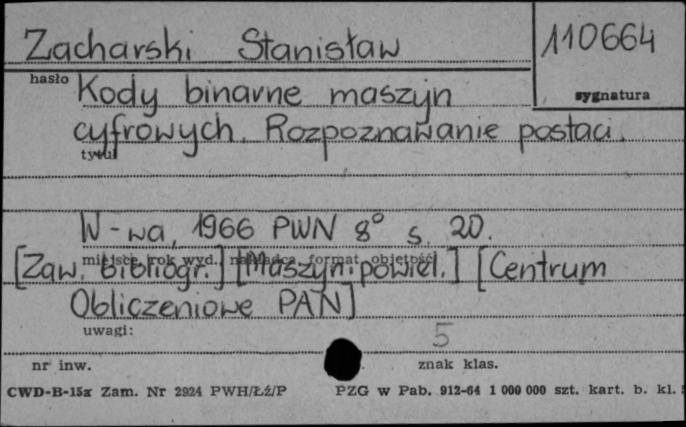 Zacharski Stanisław
110664
hasło
sygnatura
Kody binarne maszyn
cyfrowych. Rozpoznawanie postaci.
tytuł
W-wa, 1966 PWN 8° s. 20.
miejsce, rok wyd., nakładca, format, objętość
[Zaw. bibliogr.] [Maszyn. powiel.] [Centrum
Obliczeniowe PAN]
uwagi:
5
nr inw.
znak klas.
CWD-B-15a Zam. Nr 2924 PWH/Łź/P
PZG w Pab. 912-64 1 000 000 szt. kart. b. kl.